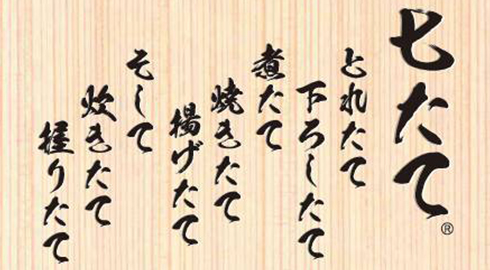 七たて®
とれたて
下ろしたて
煮たて
焼きたて
揚げたて
そして
炊きたて
握りたて